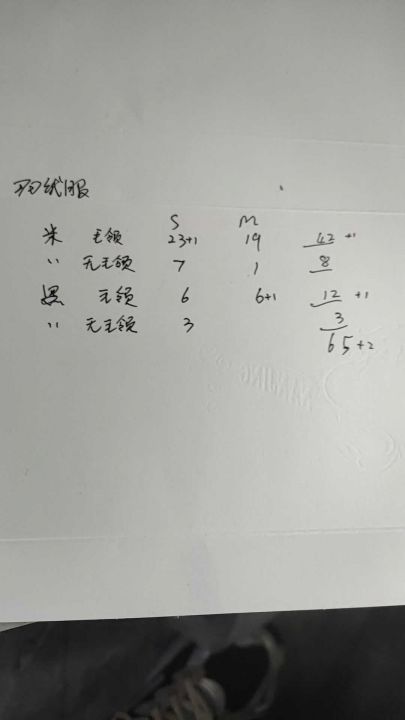 S M
米 毛领 23+1 19 42 +1
〃 无毛领 7 1 8
黑 毛领 6 6+1 12 +1
〃 无毛领 3 3
65+2
NANJING